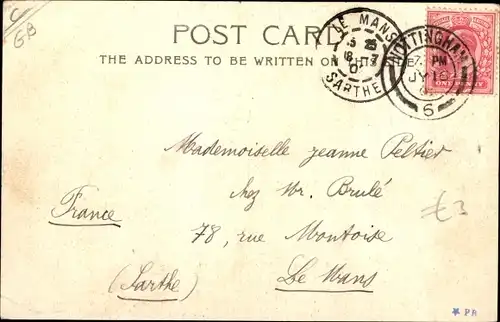 GB
POST CARD
THE ADDRESS TO BE WRITTEN ON THIS
LE MANS
SARTHE
NOTTINGHAM
PM
JY
6
Mademoiselle Jeanne Peltier
chez Mr. Brulé
France
78, rue Montoise
(Sarthe)
Le Mans
£3
* PR